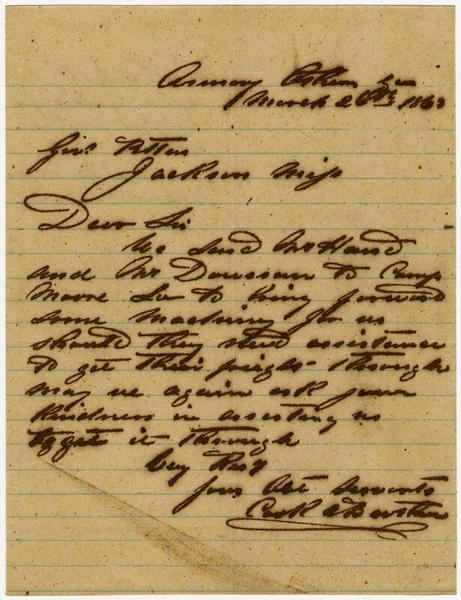 Armory Athens Ga
March 26th 1863
Govr Pettus
Jackson Miss
Dear Sir
We send Mr Hand
and Mr to Camp
Moore La to bring forward
some Machinery for us
should they need assistance
to get their freight through
may we again ask your
Kindness in assisting us
to get it through
Very Resy
your Obt Servants
Cook & Brother